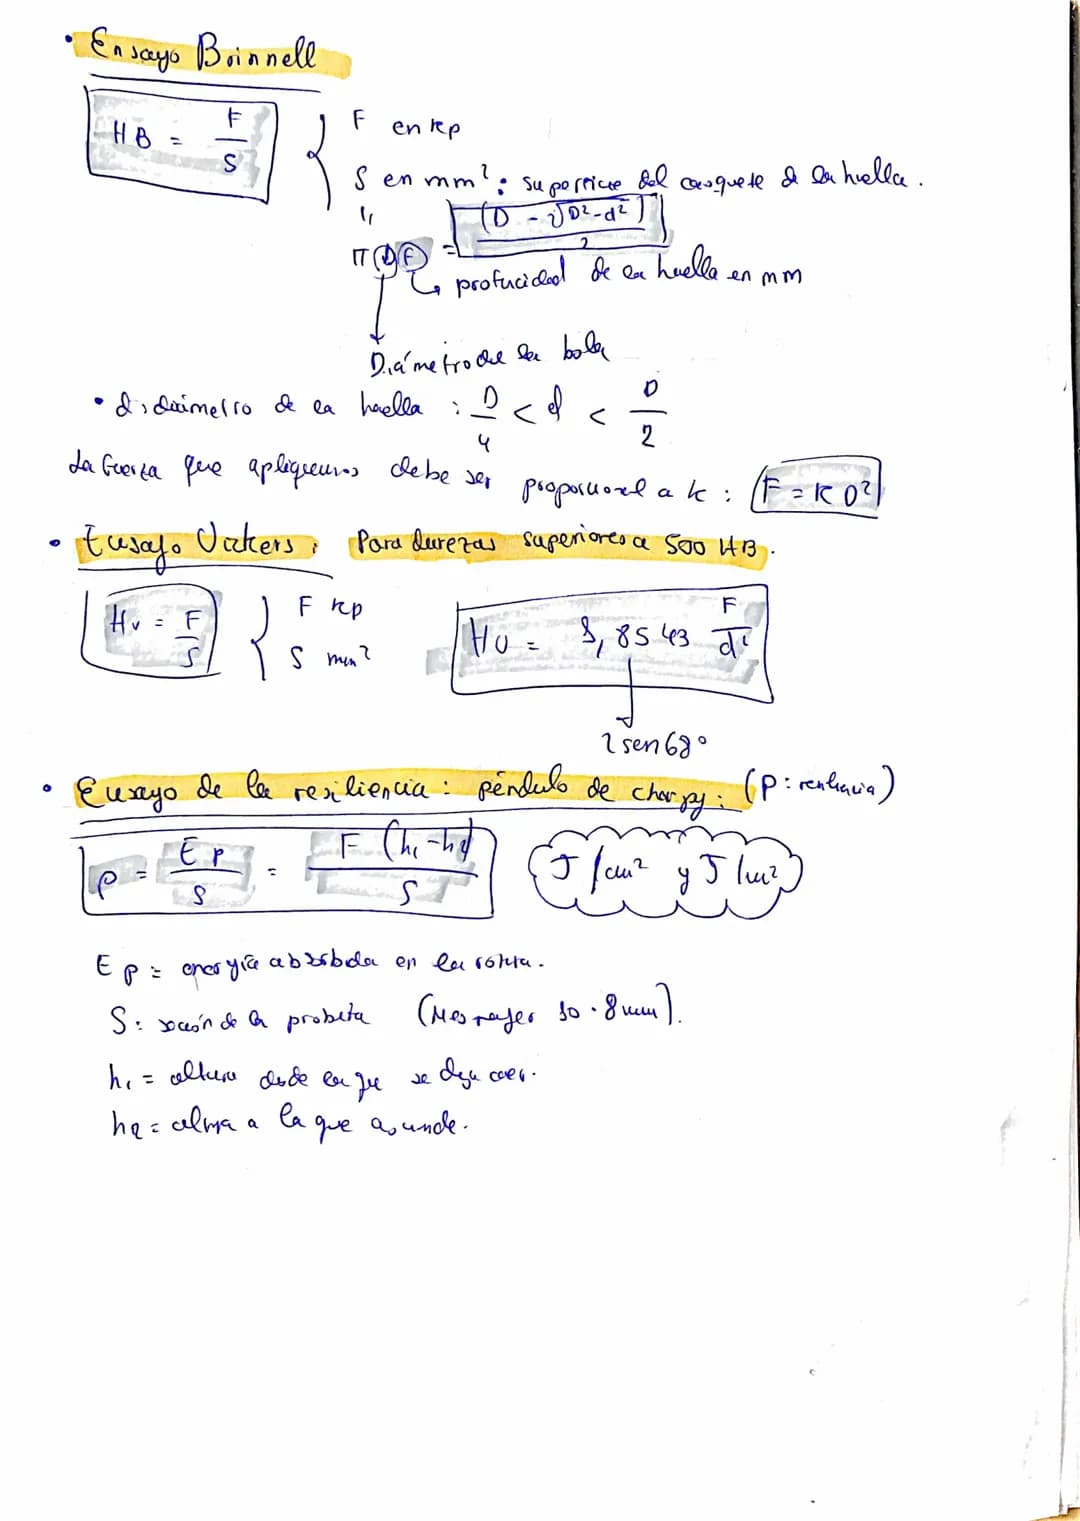 • Ensayo Brinnell
HB = F/S { F en kp
S en mm²: superficie del casquete de la huella.
π D F = (D - √D²-d²)/2
profucidad de la huella en mm
Diámetro de la bola
• d: diámetro de la huella : D/4 < d < D/2
La fuerza que apliquemos debe ser proporcional a k : F = K D²
• Ensayo Vickers: Para durezas superiores a 500 HB.
Hv = F/S { F kp
S mm²
Hv = 1,8543 F/d²
2 sen 68°
• Ensayo de la resiliencia: péndulo de charpy: (ρ: resiliencia)
ρ = Ep/S = F (h₁-h₂)/S
J/cm² y J/m²
Ep = energía absorbida en la rotura.
S: sección de la probeta (Mesnager 10·8mm).
h₁ = altura desde la que se deja caer.
h₂ = altura a la que asciende.